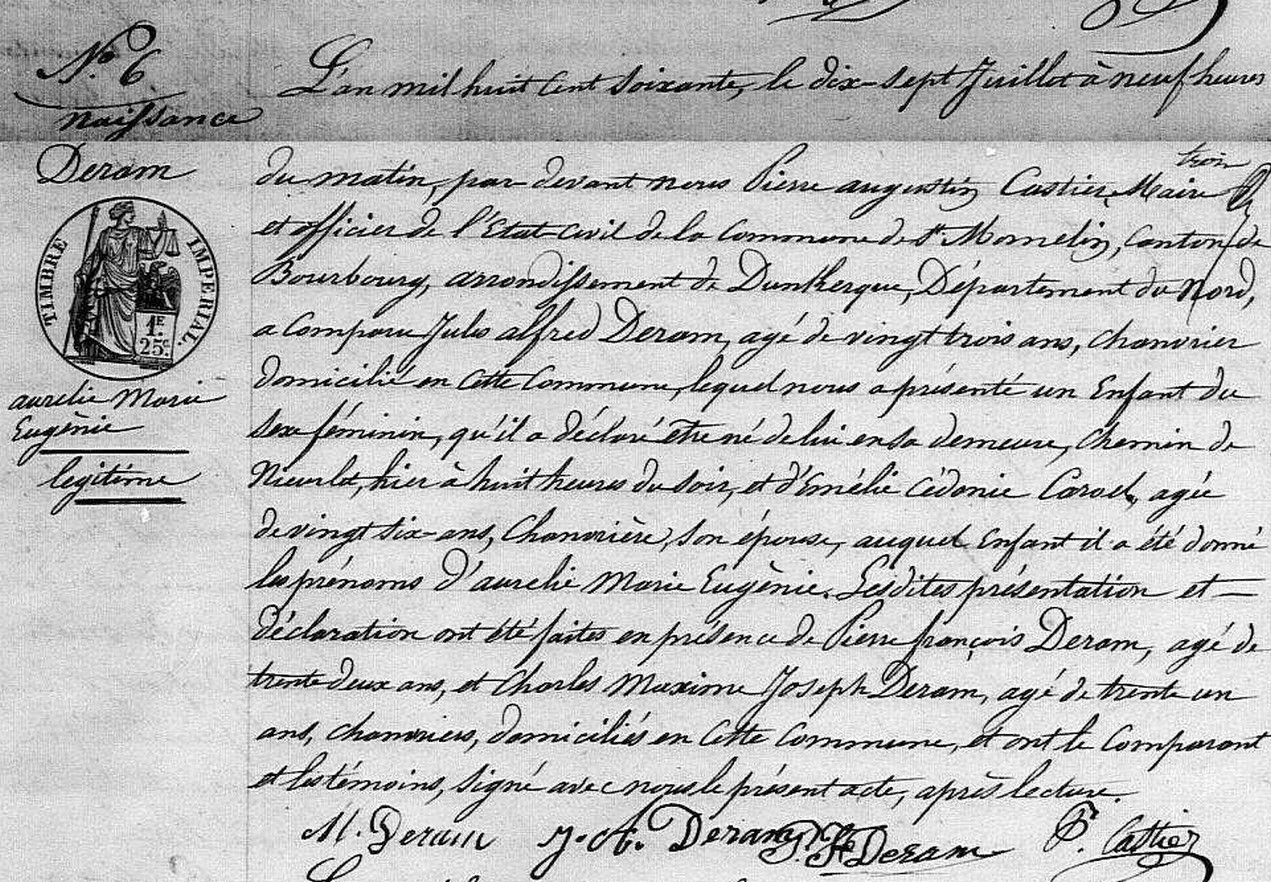 N.º 6.
naissance
Deram
TIMBRE IMPERIAL.
1F.
25c.
aurelie Marie
Eugènie
legitime
L'an mil huit cent soixante, le dix-sept Juillet à neuf heures
du matin, par devant nous Pierre augustin Castier, Maire
et officier de l'Etat-Civil de la Commune de St Momelin, Canton de
Bourbourg, arrondissement de Dunkerque, Département du Nord,
a comparu Jules alfred Deram, agé de vingt trois ans, chanvrier
domicilié en cette Commune, lequel nous a présenté un Enfant du
sexe féminin, qu'il a déclaré être né de lui en sa demeure, Chemin de
Nieurlet, hier à huit heures du soir, et d'Emélie Cédonie Caroel, agée
de vingt six-ans, Chanvrière, son épouse, auquel Enfant il a été donné
les prénoms d'aurelie Marie Eugènie. Lesdites présentation et —
déclaration ont été faites en présence de Pierre françois Deram, agé de
trente deux ans, et Charles Maxime Joseph Deram, agé de trente un
ans, chanvriers, domiciliés en cette Commune, et ont le Comparant
et les témoins, signé avec nous le présent acte, après lecture.
M. Deram J. A. Deram Deram P. Castier